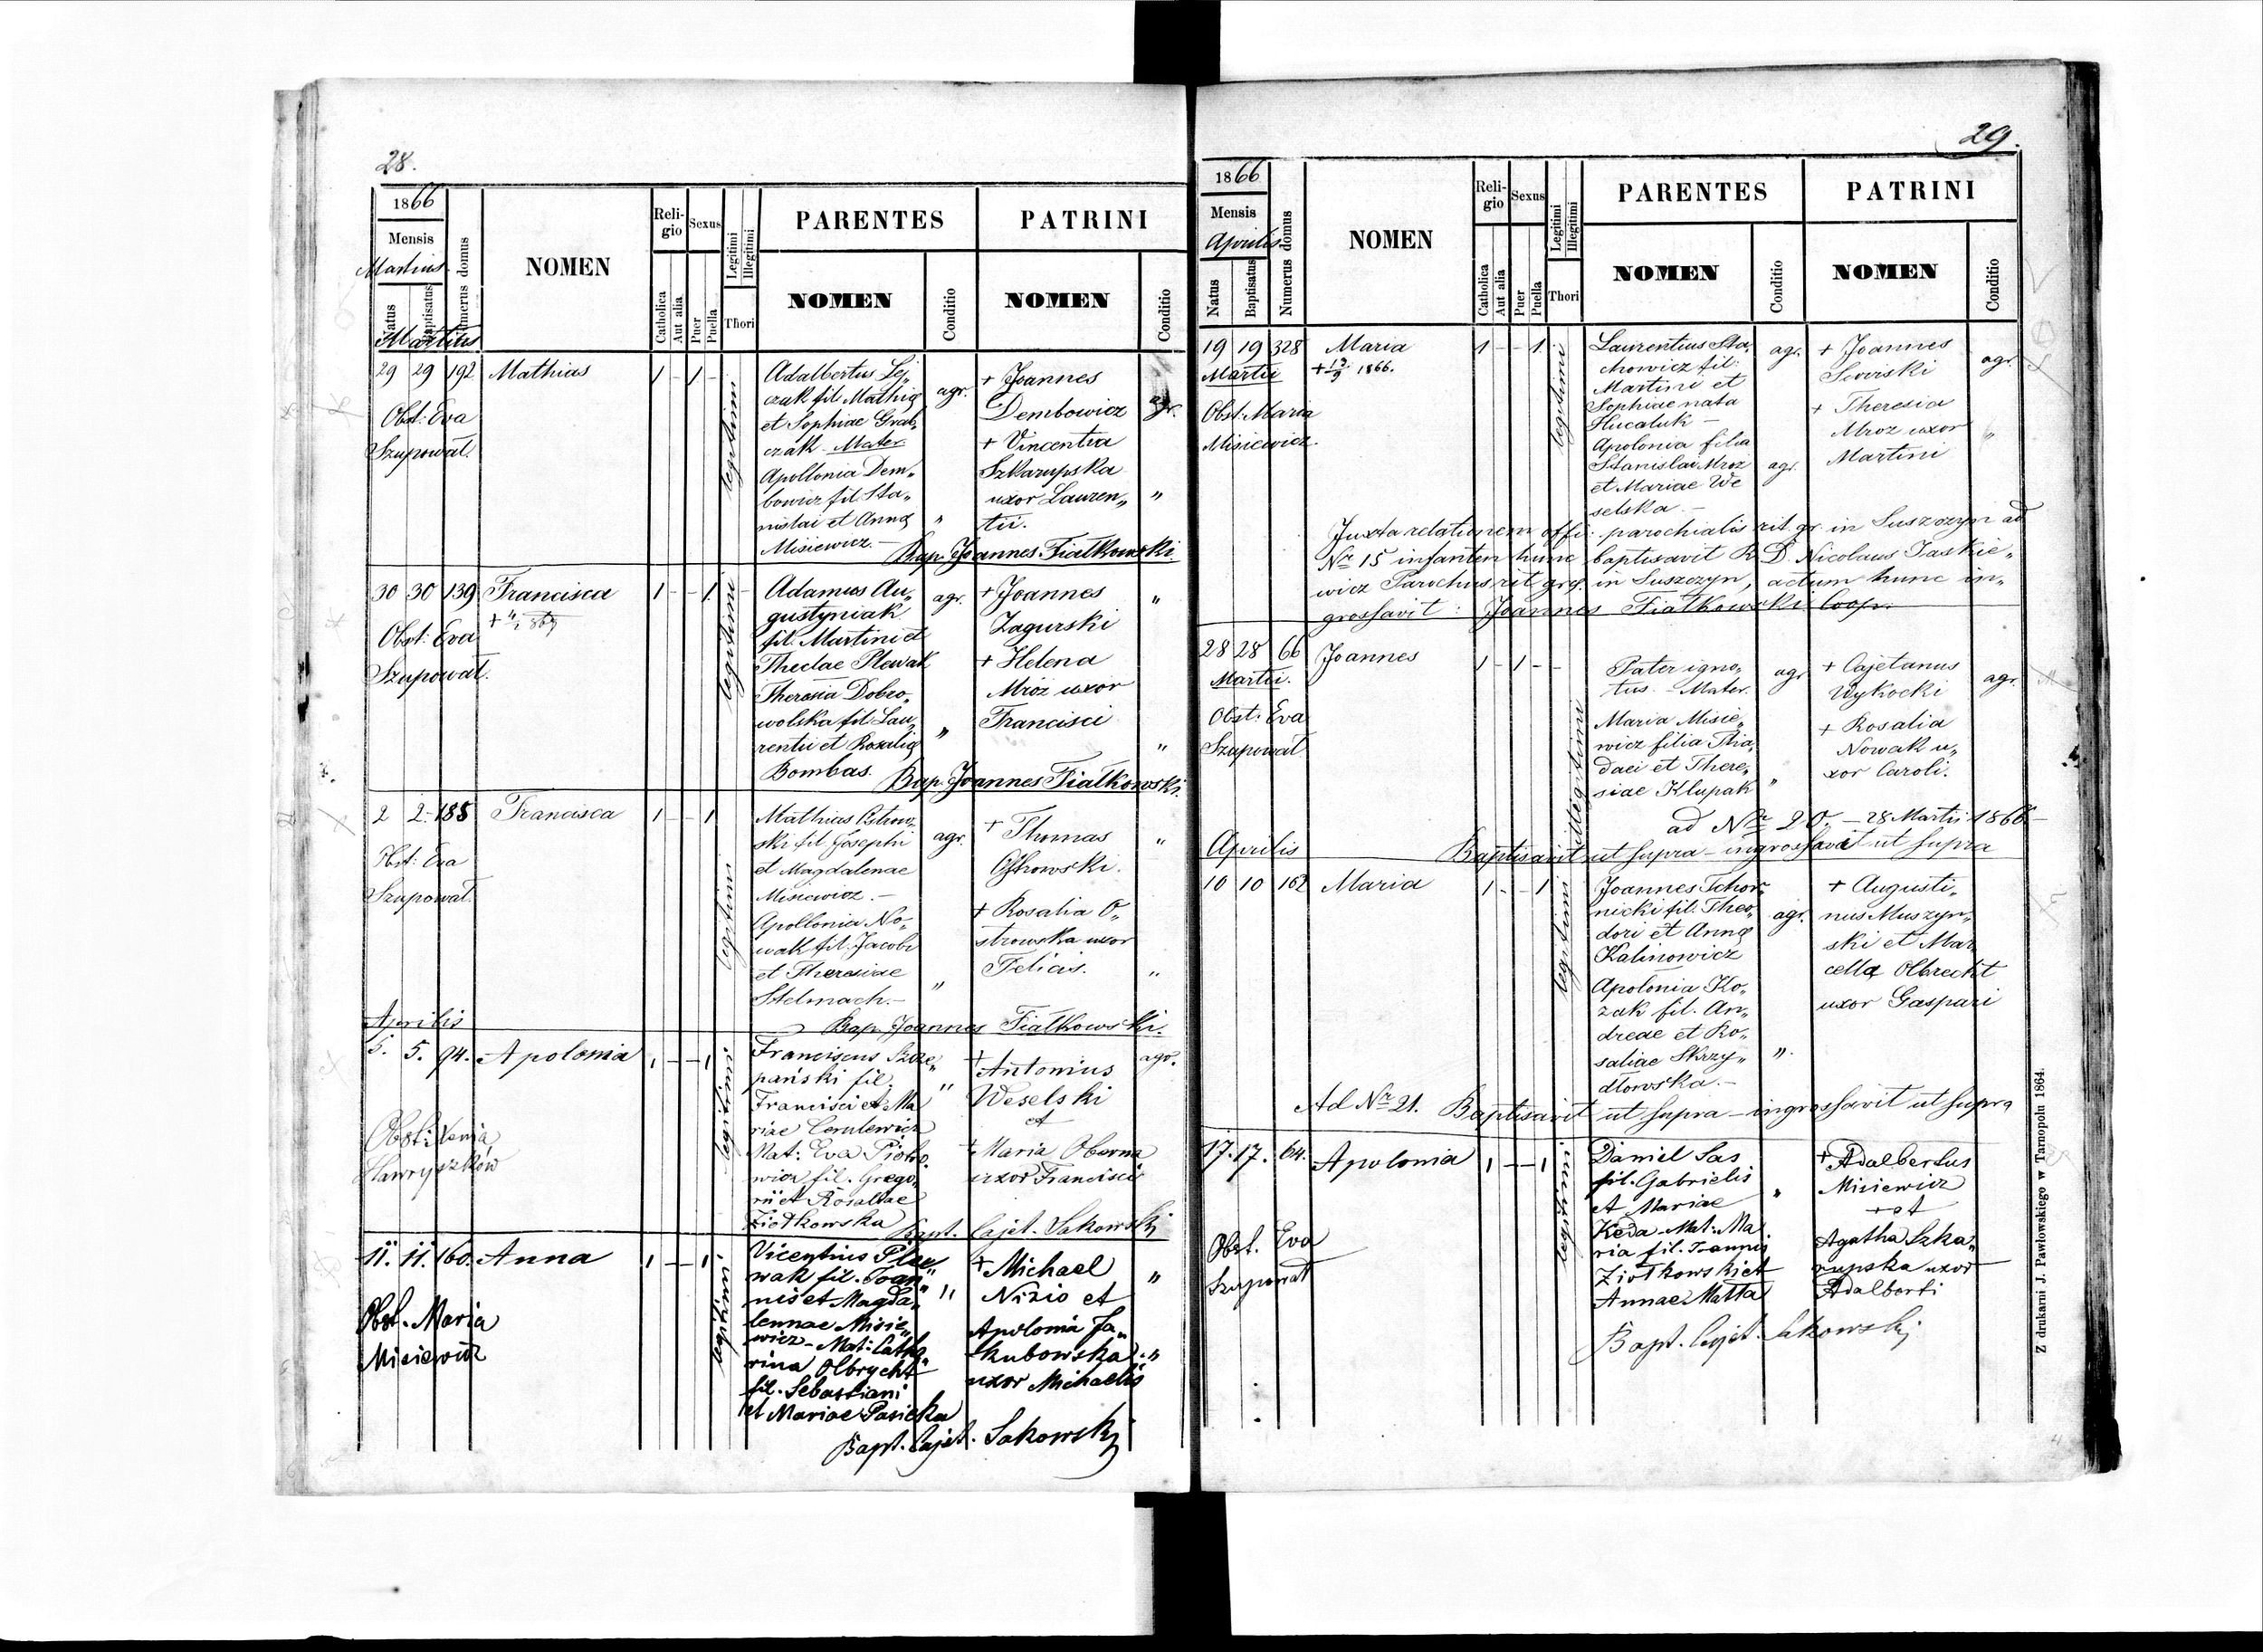 28.
1866
Mensis
Martius
Natus
Baptisatus
Numerus domus
NOMEN
Religio
Catholica
Aut alia
Sexus
Puer
Puella
Legitimi
Illegitimi
Thori
PARENTES
NOMEN
Conditio
PATRINI
NOMEN
Conditio
Martius
29 29 192 Mathias 1 - 1 -
Obst: Eva
Szupowat.
legitimi
Adalbertus Lej„
czak fil. Mathiæ
et Sophiae Grab„
czak - Mater
Apollonia Dem„
bowicz fil. Sta„
nislai et Annæ
Misiewicz. -
agr.
„
+ Joannes
Dembowicz
+ Vincentia
Szkarupska
uxor Lauren„
tii.
agr.
„
Bap. Joannes Fialkowski.
30 30 139 Francisca 1 - - 1
Obst: Eva
Szupowat.
legitimi
Adamus Au„
gustyniak
fil. Martini et
Theclae Plewak
Theresia Dobro„
wolska fil. Lau„
rentii et Rosaliæ
Bombas.
agr.
„
+ Joannes
Zagurski
+ Helena
Mróz uxor
Francisci
„
„
Bap. Joannes Fialkowski.
2 2. 188 Francisca 1 - - 1
Obst: Eva
Szupowat.
legitimi
Mathias Ostrow„
ski fil. Josephi
et Magdalenae
Misiewicz. -
Apollonia No„
wak fil. Jacobi
et Theresiae
Stelmach. -
agr.
„
+ Thomas
Ostrowski.
+ Rosalia O„
strowska uxor
Felicis.
„
„
Bap. Joannes Fialkowski.
Aprilis
5. 5. 94. Apolonia 1 - - 1
Obst: Xenia
Hawryszków
legitimi
Franciscus Szcze„
pański fil.
Francisci et Ma
riae Cerulewicz
Mat: Eva Piotro
wicz fil. Grego„
rii et Rosaliae
Ziołkowska
„
+ Antonius
Weselski
et
+ Maria Oborna
uxor Francisci
agr.
Bapt. Cajet. Sakowskj
11. 11. 160. Anna 1 - - 1
Obst. Maria
Misiewicz
legitimi
Vicentius Plew
wak fil. Joan„
nis et Magda„
lennae Misie„
wicz - Mat: Catha
rina Olbrycht
fil. Sebastiani
et Mariae Pasieka
„
+ Michael
Nizio et
Apolonia Ja„
kubowska
uxor Michaelis
„
„
Bapt. Cajet. Sakowskj
29.
1866
Mensis
Aprilis
Natus
Baptisatus
Numerus domus
NOMEN
Religio
Catholica
Aut alia
Sexus
Puer
Puella
Legitimi
Illegitimi
Thori
PARENTES
NOMEN
Conditio
PATRINI
NOMEN
Conditio
19 19 328 Maria 1 - - 1
Martii
1866.
Obst: Maria
Misiewicz.
legitimi
Laurentius Sta„
chowicz fil.
Martini et
Sophiae nata
Hucaluk -
Apolonia filia
Stanislai Mroz
et Mariae We
selska. -
agr.
agr.
+ Joannes
Siwiski
+ Theresia
Mroz uxor
Martini
agr.
„
Juxta relationem offi: parochialis rit. gr. in Suszczyn ad
Nr 15 infantem hunc baptisavit R. D. Nicolaus Jaskie„
wicz Parochus rit. græ. in Suszczyn, actum hunc in„
grossavit: Joannes Fialkowski Coop.
28 28 66 Joannes 1 - 1 - -
Martii.
Obst: Eva
Szupowat
illegitimi
Pater igno„
tus. - Mater.
Maria Misie„
wicz filia Tha„
daei et There„
siae Klupak
agr
„
+ Cajetanus
Wykocki
+ Rosalia
Nowak u„
xor Caroli.
agr.
ad Nr 20. - 28 Martii 1866 -
Baptisavit ut supra - ingrossavit ut supra
Aprilis
10 10 162 Maria 1 - - 1
legitimi
Joannes Tchor„
nicki fil. Theo„
dori et Annæ
Kalinowicz
Apolonia Ko„
zak fil. An„
dreae et Ro„
saliae Skrzy„
dłowska. -
agr.
„.
+ Augusti„
nus Muszyn„
ski et Mar
cella Olbrecht
uxor Gaspari
Ad Nr 21. Baptisavit ut supra - ingrossavit ut supra
17. 17. 64. Apolonia 1 - - 1
Obst. Eva
Szupowat
legitimi
Daniel Sas
fil. Gabrielis
et Mariae
Keda - Mat: Ma
ria fil. Joannis
Ziołkowski et
Annae Matta
„
+ Adalbertus
Misiewicz
+ et
Agatha Szka„
rupska uxor
Adalberti
Bapt. Cajet. Sakowskj
Z drukarni J. Pawłowskiego w Tarnopolu 1864.